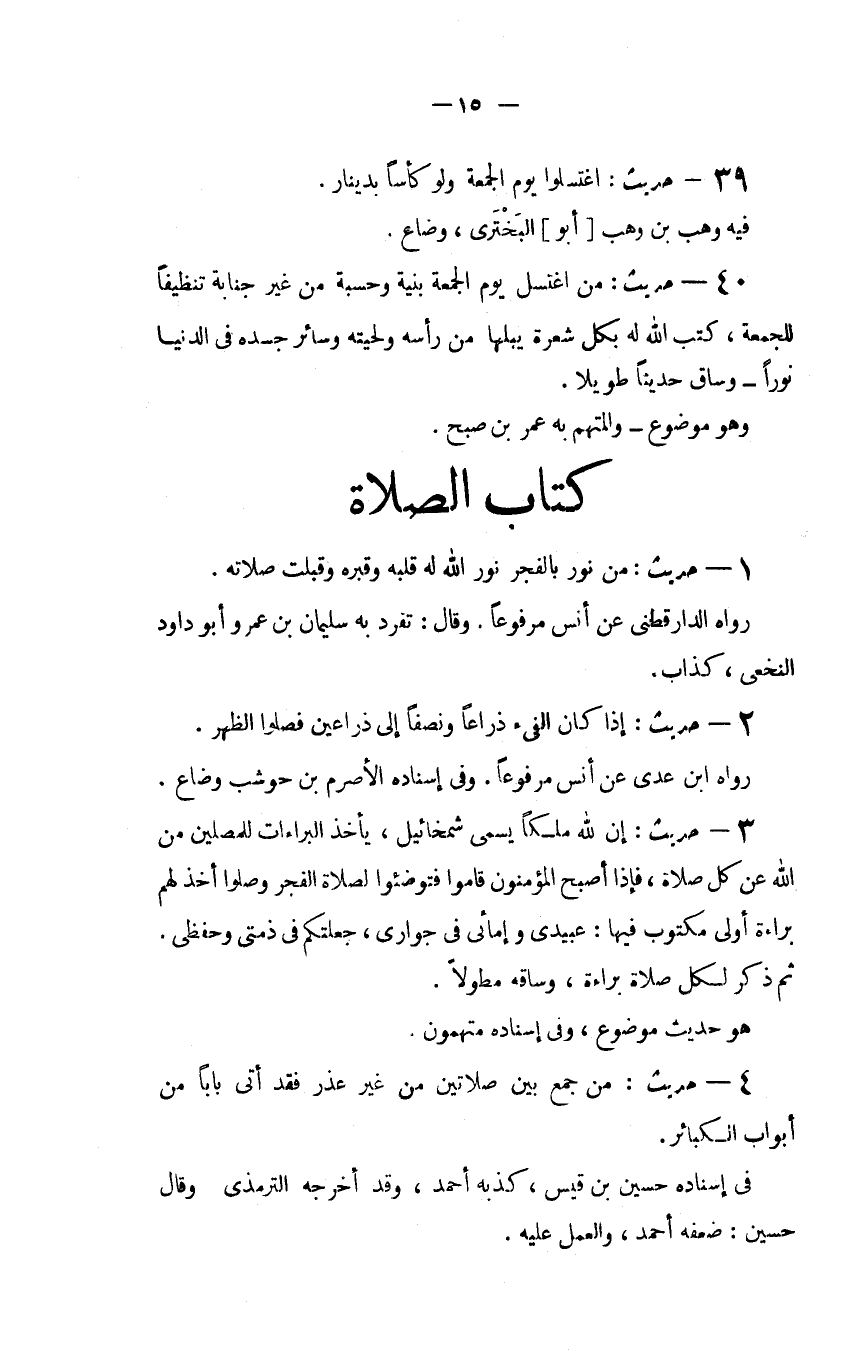 — ١٥ —
٣٩ — حديث : اغتسلوا يوم الجمعة ولو كأساً بدينار .
فيه وهب بن وهب [ أبو ] البَخْتَرى ، وضاع .
٤٠ — حديث : من اغتسل يوم الجمعة بنية وحسبة من غير جنابة تنظيفاً
للجمعة ، كتب الله له بكل شعرة يبلها من رأسه ولحيته وسائر جسده فى الدنيا
نوراً ــ وساق حديثاً طويلا .
وهو موضوع ــ والمتهم به عمر بن صبح .
كتاب الصلاة
١ — حديث : من نور بالفجر نور الله له قلبه وقبره وقبلت صلاته .
رواه الدارقطنى عن أنس مرفوعاً . وقال : تفرد به سليمان بن عمرو أبو داود
النخعى ، كذاب .
٢ — حديث : إذا كان الفىء ذراعاً ونصفاً إلى ذراعين فصلوا الظهر .
رواه ابن عدى عن أنس مرفوعاً . وفى إسناده الأصرم بن حوشب وضاع .
٣ — حديث : إن لله ملكاً يسمى شمخائيل ، يأخذ البراءات للمصلين من
الله عن كل صلاة ، فإذا أصبح المؤمنون قاموا فتوضئوا لصلاة الفجر وصلوا أخذ لهم
براءة أولى مكتوب فيها : عبيدى و إمائى فى جوارى ، جعلتكم فى ذمتى وحفظى .
ثم ذكر لكل صلاة براءة ، وساقه مطولاً .
هو حديث موضوع ، وفى إسناده متهمون .
٤ — حديث : من جمع بين صلاتين من غير عذر فقد أتى باباً من
أبواب الكبائر .
فى إسناده حسين بن قيس ، كذبه أحمد ، وقد أخرجه الترمذى وقال
حسين : ضعفه أحمد ، والعمل عليه .